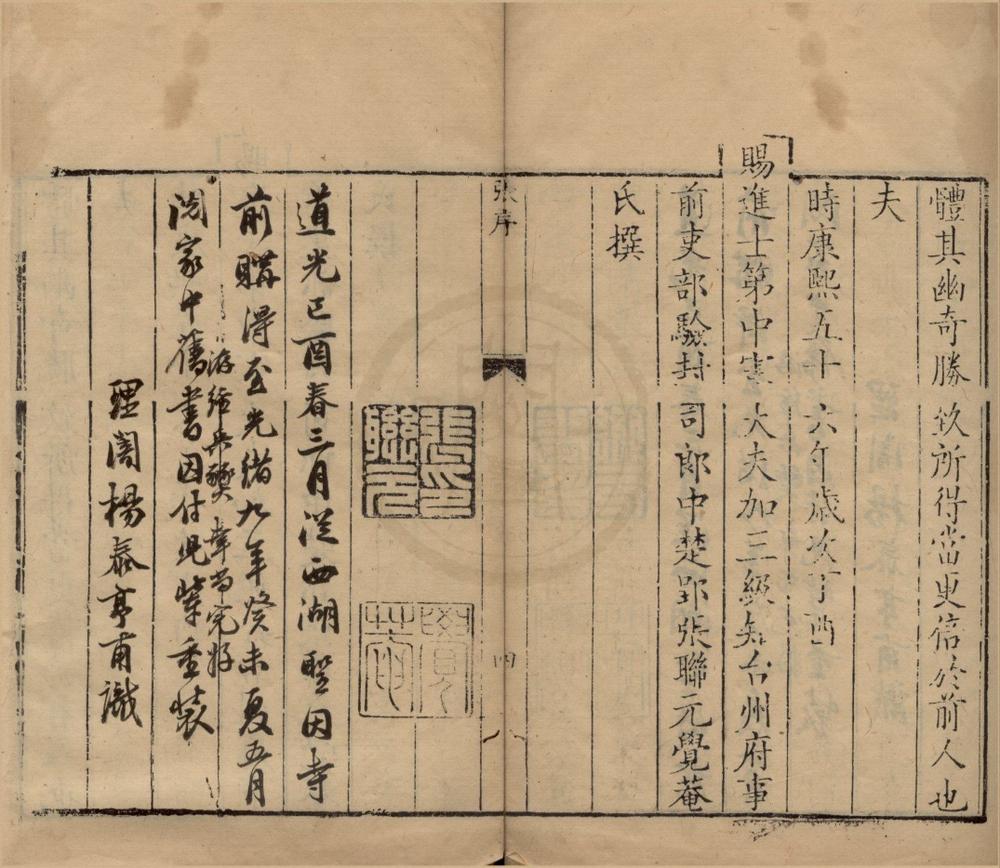 體其幽奇勝致所得當更倍於前人也
夫
時康熙五十六年歲次丁酉
賜進士第中憲大夫加三級知台州府事
前吏部驗封司郎中楚郢張聯元覺菴
氏撰
張序
四
張聯元印
覺菴
道光己酉春三月從西湖聖因寺
前購得至光緒九年癸未夏五月
游經兵燹幸尚完好
閱家中舊書因付兒輩重裝
理菴楊泰亨甫識